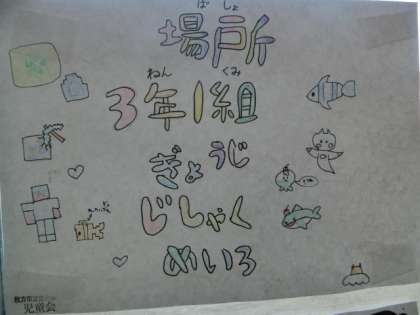 ばしょ
場所
ねん くみ
3年1組
ぎょうじ
じしゃく
めいろ
児童会